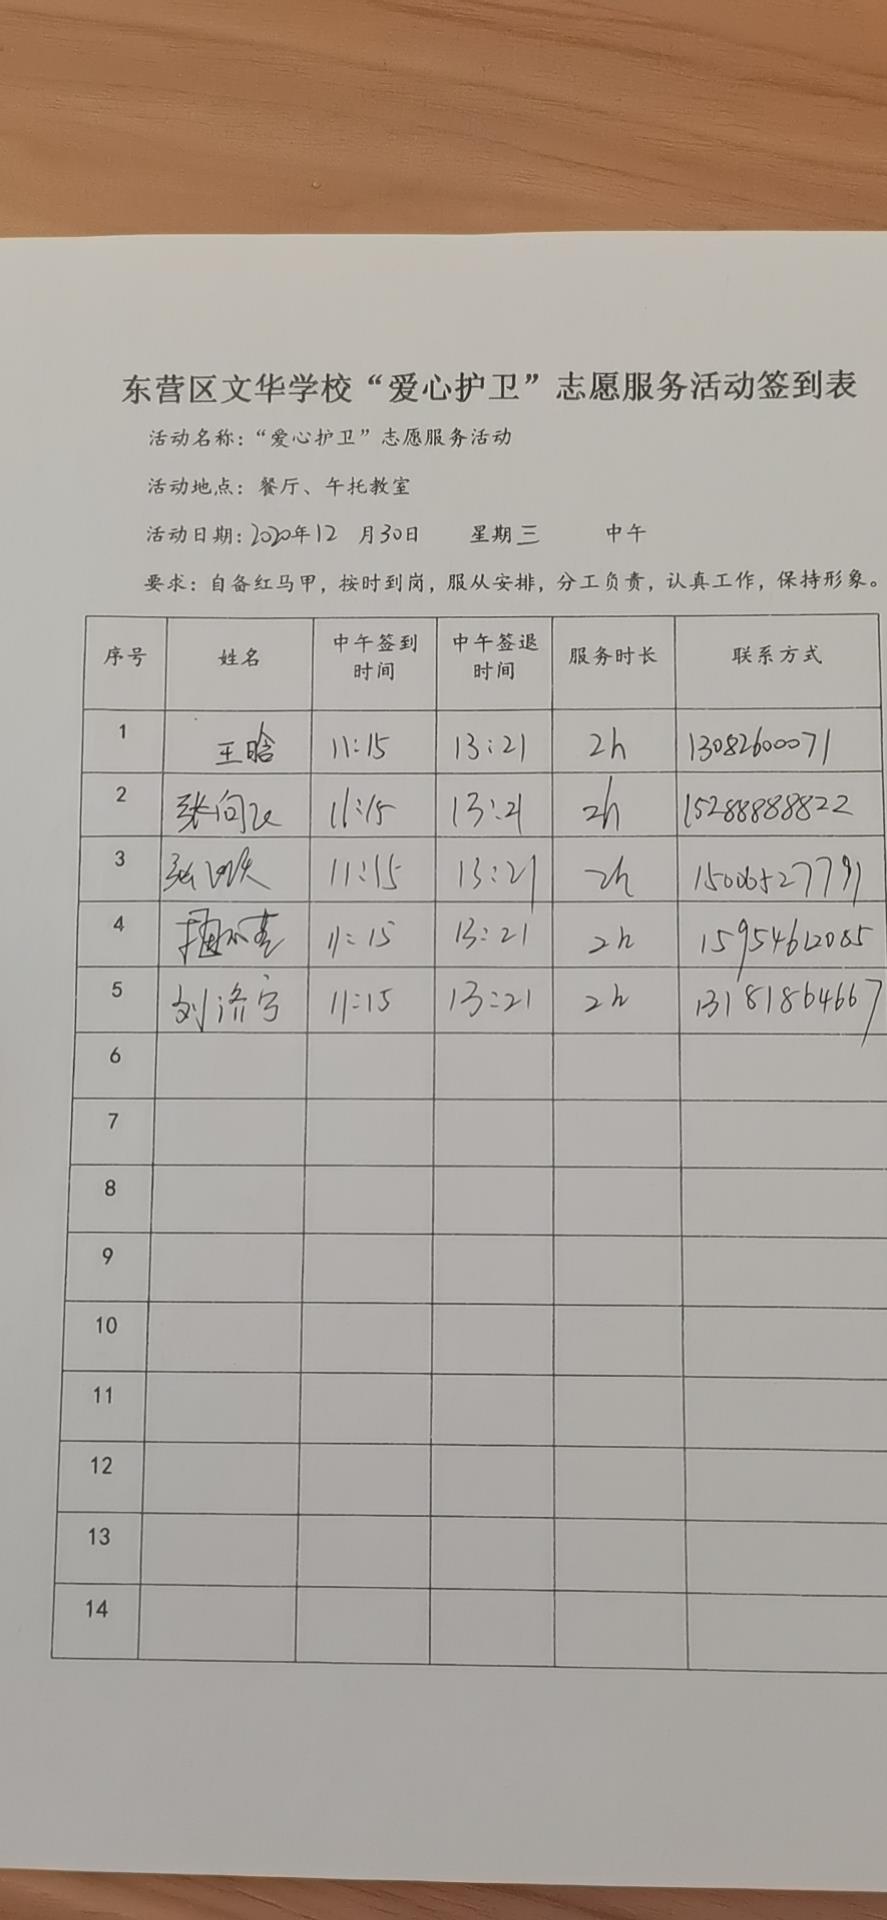 东营区文华学校“爱心护卫”志愿服务活动签到表
活动名称：“爱心护卫”志愿服务活动
活动地点：餐厅、午托教室
活动日期：2020年12月30日 星期三 中午
要求：自备红马甲，按时到岗，服从安排，分工负责，认真工作，保持形象。
序号 姓名 中午签到时间 中午签退时间 服务时长 联系方式
1 王晗 11:15 13:21 2h 13082600071
2 张向 11:15 13:21 2h 15288888822
3 张 11:15 13:21 2h 15006527791
4 11:15 13:21 2h 15954612085
5 刘济宁 11:15 13:21 2h 13181864667
6
7
8
9
10
11
12
13
14